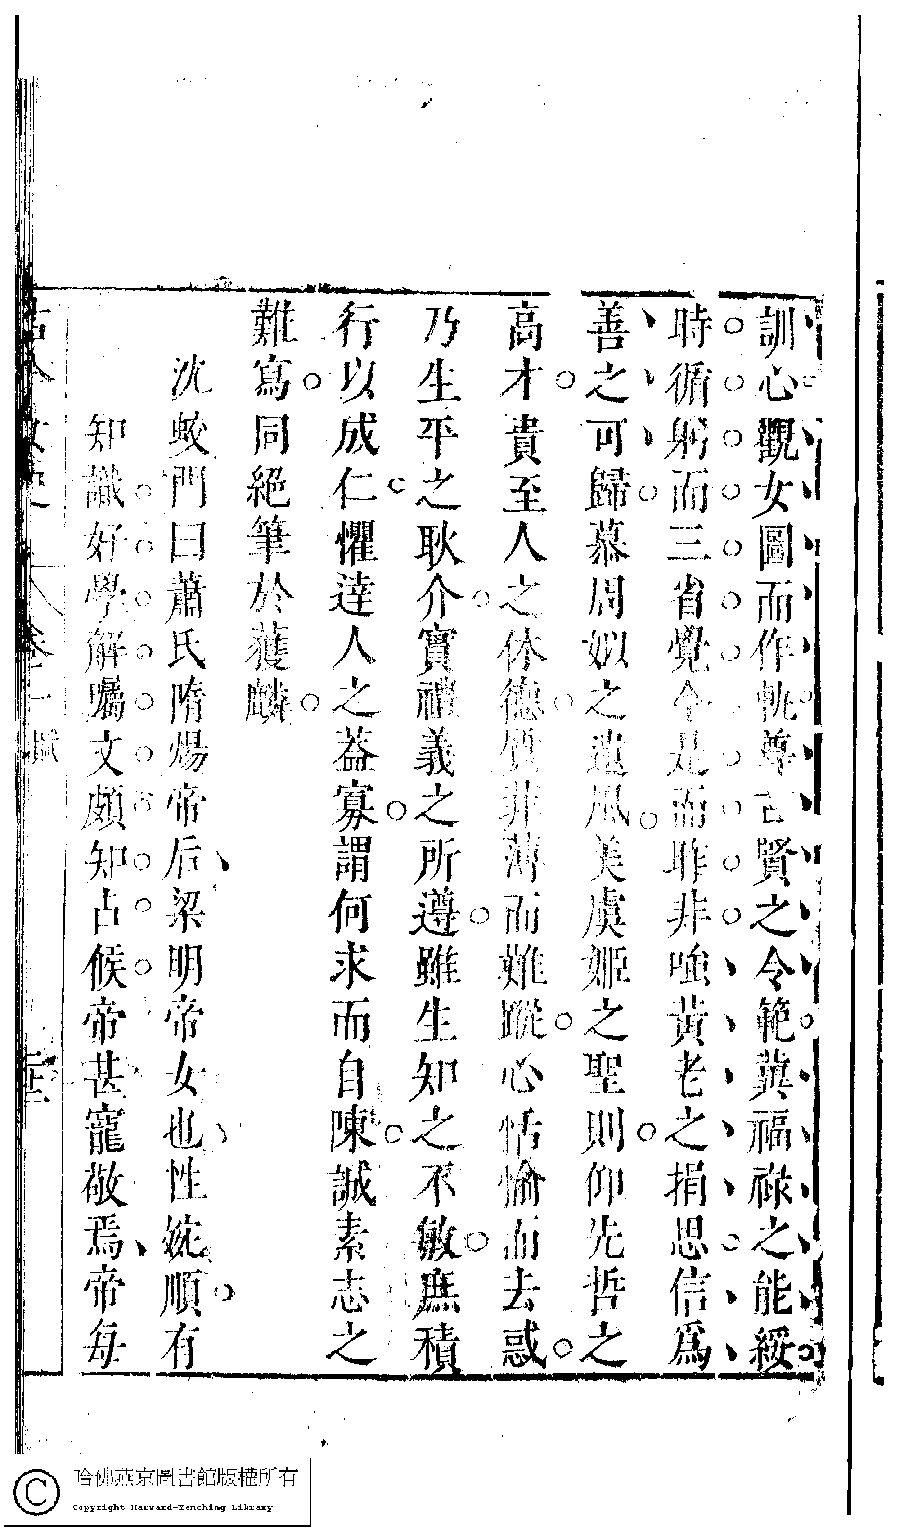 訓心觀女圖而作軌尊古賢之令範冀福祿之能綏
時循躬而三省覺今是而昨非嗤黃老之捐思信爲
善之可歸慕周姒之遺風美虞姬之聖則仰先哲之
高才貴至人之休德質非薄而難蹤心恬愉而去惑
乃生平之耿介實禮義之所遵雖生知之不敏庶積
行以成仁懼達人之葢寡謂何求而自陳誠素志之
難寫同絕筆於獲麟
沈蛟門曰蕭氏隋煬帝后梁明帝女也性婉順有
知識好學解屬文頗知占候帝甚寵敬焉帝每
古今女史 卷一 賦
哈佛燕京圖書館版權所有
Copyright Harvard-Yenching Library